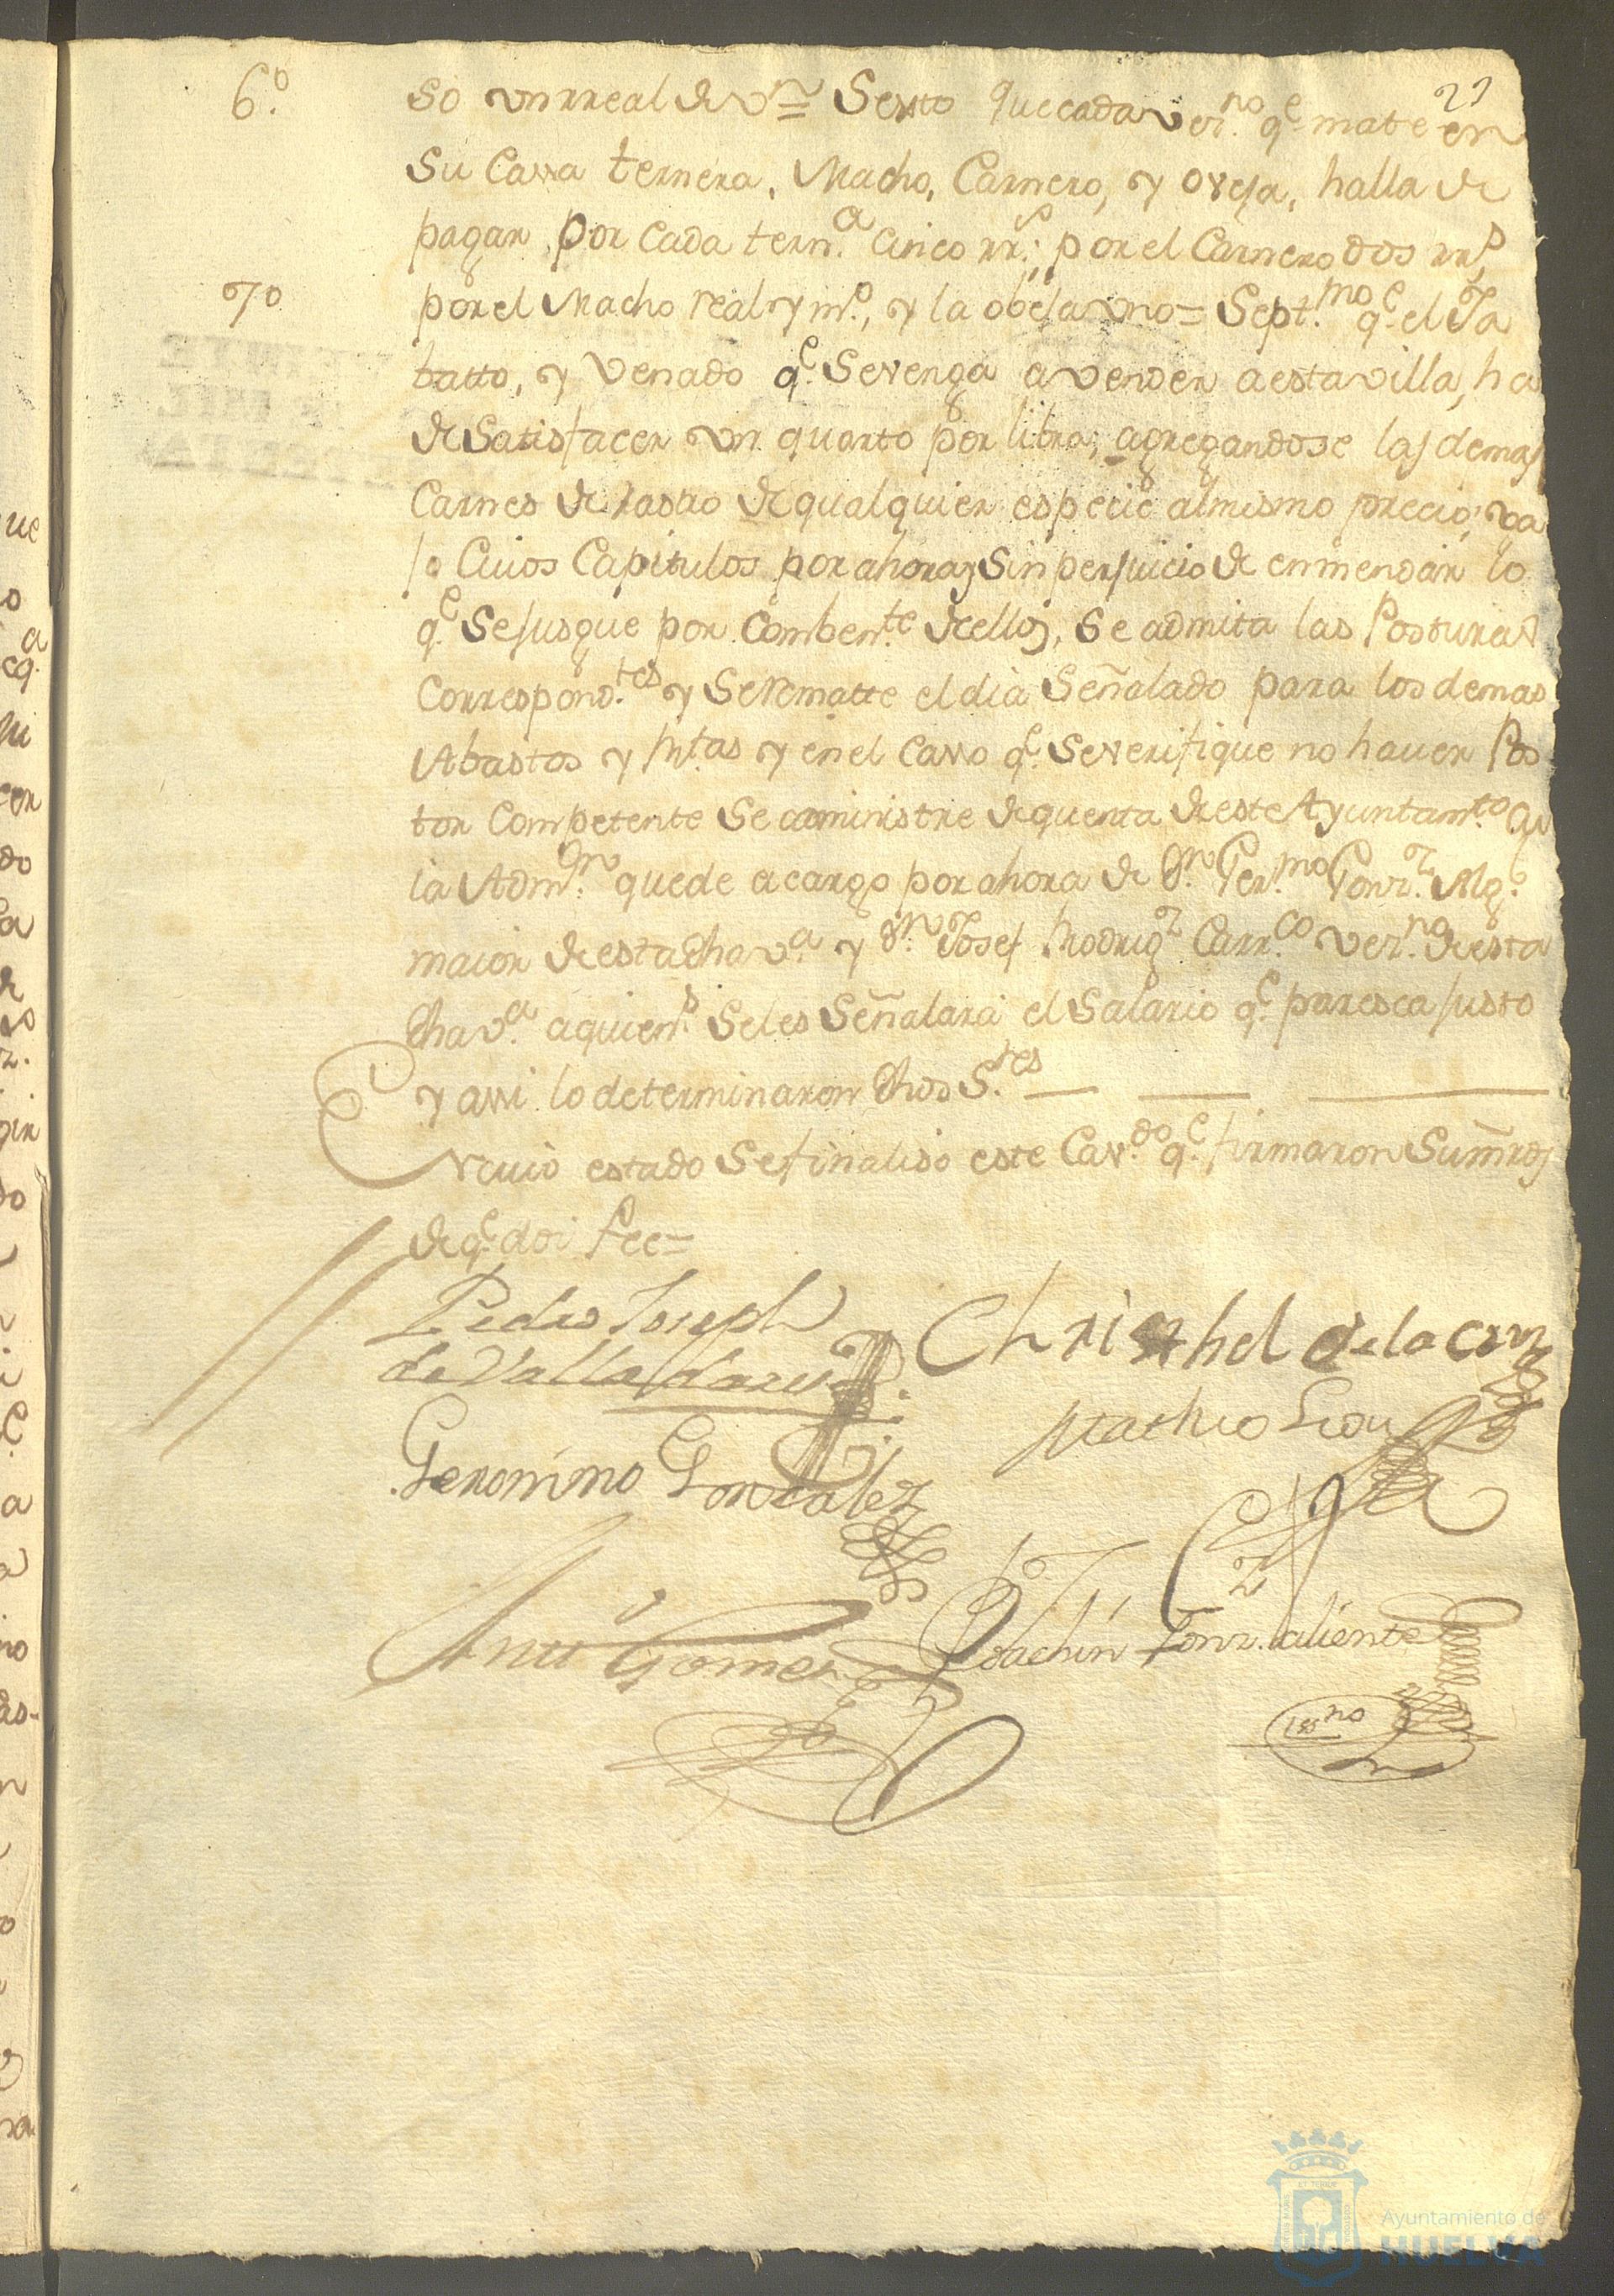 21
6.º so vn rreal de v.n = Sexto que cada vez.no q.e mate en
su Cassa ternera, Macho, Carnero, y oveja, halla de
pagar por cada tern.a cinco rr.s; por el Carnero dos rr.s
7º por el Macho real y m.o, y la obeja vno = Sept.mo q.e el Ja
batto, y venado q.e se venga a vender a esta villa, ha
de satisfacer vn quarto por libra; agregandose las demas
Carnes de rastro de qualquier especie al mismo precio; va
jo Cuios Capitulos por ahora, y sin perjuicio de enmendar lo
q.e se jusgue por Comben.te de ellos, se admita las Posturas
Correspond.tes y se rematte el dia Señalado para los demas
Abastos y Rtas y en el Casso q.e se verifique no hauer Pos
tor Competente se administre de quenta de este Ayuntam.to
la Adm.on quede a cargo por ahora de D.n Ger.mo Gonz.z Alg.l
maior de esta dha v.a y D.n Josef Rodrig.z Carr.co vez.no de esta
dha v.a a quien.s se les Señalará el Salario q.e paresca justo
y assi lo determinaron dhos S.res
En cuio estado se finaliso este Cav.do q.e firmaron Sus mrds
de q.e doi fee =
Pedro Joseph
de Valladares
Christhel de la Cruz
Geronimo Gonzalez
Matheo
Gomez
Joachin Gonz.z aliente
ess.no
Ayuntamiento de
HUELVA